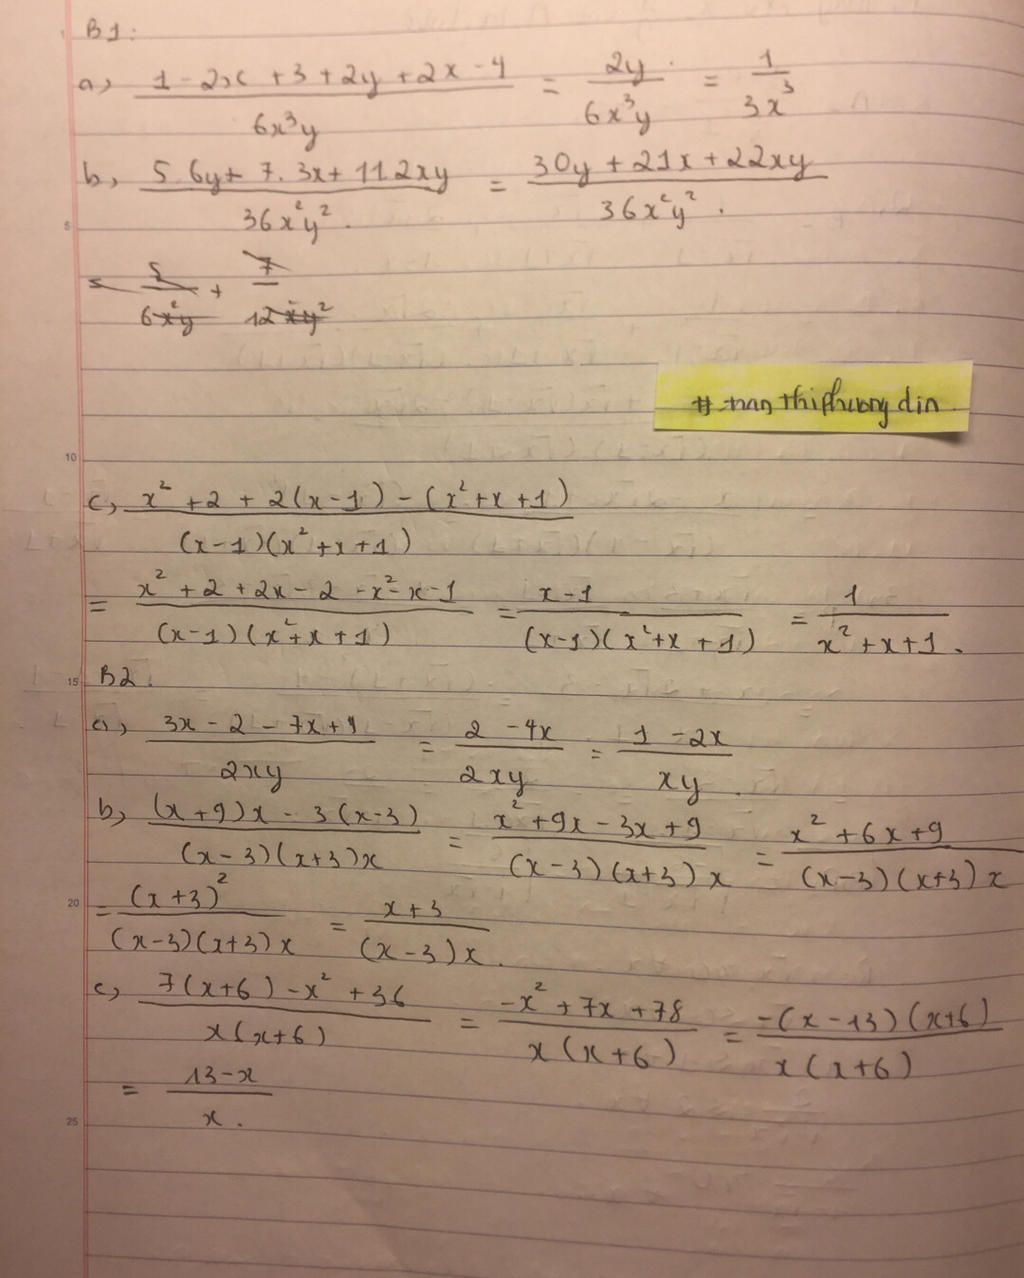 B1:
a, (1 - 2x + 3 + 2y + 2x - 4)/(6x³y) = 2y/(6x³y) = 1/(3x³)
b, (5.6y + 7.3x + 11.2xy)/(36x²y²) = (30y + 21x + 22xy)/(36x²y²).
= 5/(6x²y) + 7/(12xy²)
# tran thi phuong din
c, (x² + 2 + 2(x-1) - (x²+x+1))/((x-1)(x²+x+1))
= (x² + 2 + 2x - 2 - x² - x - 1)/((x-1)(x²+x+1)) = (x-1)/((x-1)(x²+x+1)) = 1/(x²+x+1).
B2.
a, (3x - 2 - 7x + 4)/(2xy) = (2 - 4x)/(2xy) = (1 - 2x)/(xy).
b, ((x+9)x - 3(x-3))/((x-3)(x+3)x) = (x² + 9x - 3x + 9)/((x-3)(x+3)x) = (x² + 6x + 9)/((x-3)(x+3)x)
= (x+3)²/((x-3)(x+3)x) = (x+3)/((x-3)x).
c, (7(x+6) - x² + 36)/(x(x+6)) = (-x² + 7x + 78)/(x(x+6)) = (-(x-13)(x+6))/(x(x+6))
= (13-x)/x.
5
10
15
20
25